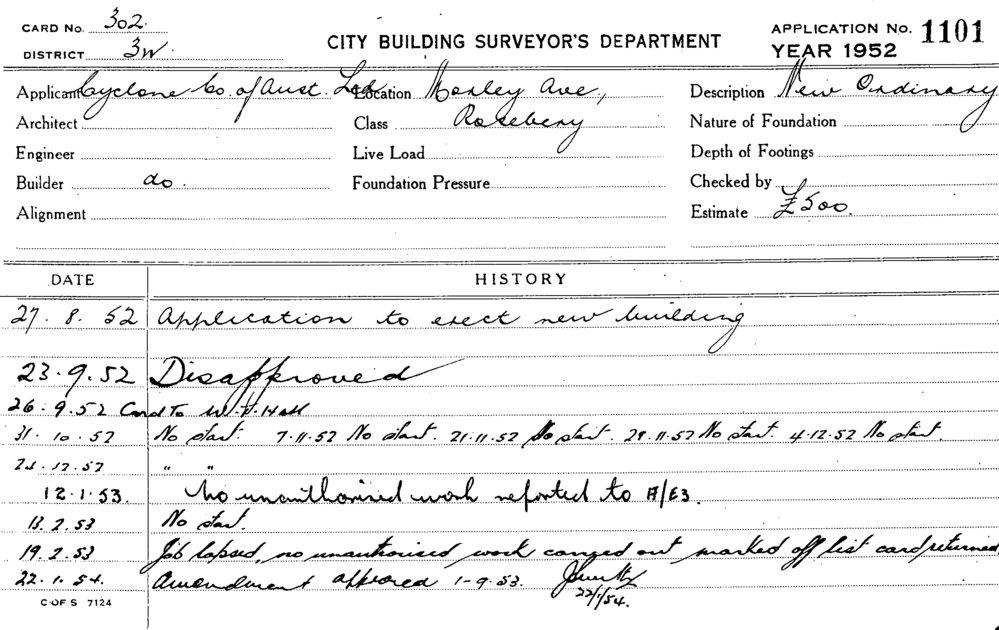 CARD No. 302.
DISTRICT 3W.
CITY BUILDING SURVEYOR'S DEPARTMENT
APPLICATION No. 1101
YEAR 1952
Applicant Cyclone Co. of Aust. Ltd Location Morley Ave, Description New Ordinary
Architect Class Rosebery Nature of Foundation
Engineer Live Load Depth of Footings
Builder do. Foundation Pressure Checked by
Alignment Estimate £500.
DATE HISTORY
27. 8. 52 Application to erect new building
23.9.52 Disapproved
26.9.52 Card To W. Hall
31.10.52 No start. 7.11.52 No start. 21.11.52 No start. 29.11.52 No start. 4.12.52 No start.
12.52 " "
12.1.53. No unauthorised work reported to
13.2.53 No start.
19.2.53 Job lapsed, no unauthorised work carried out marked off list card returned
22.1.54. Amendment approved 1-9.53.
22/1/54.
C OF S 7124